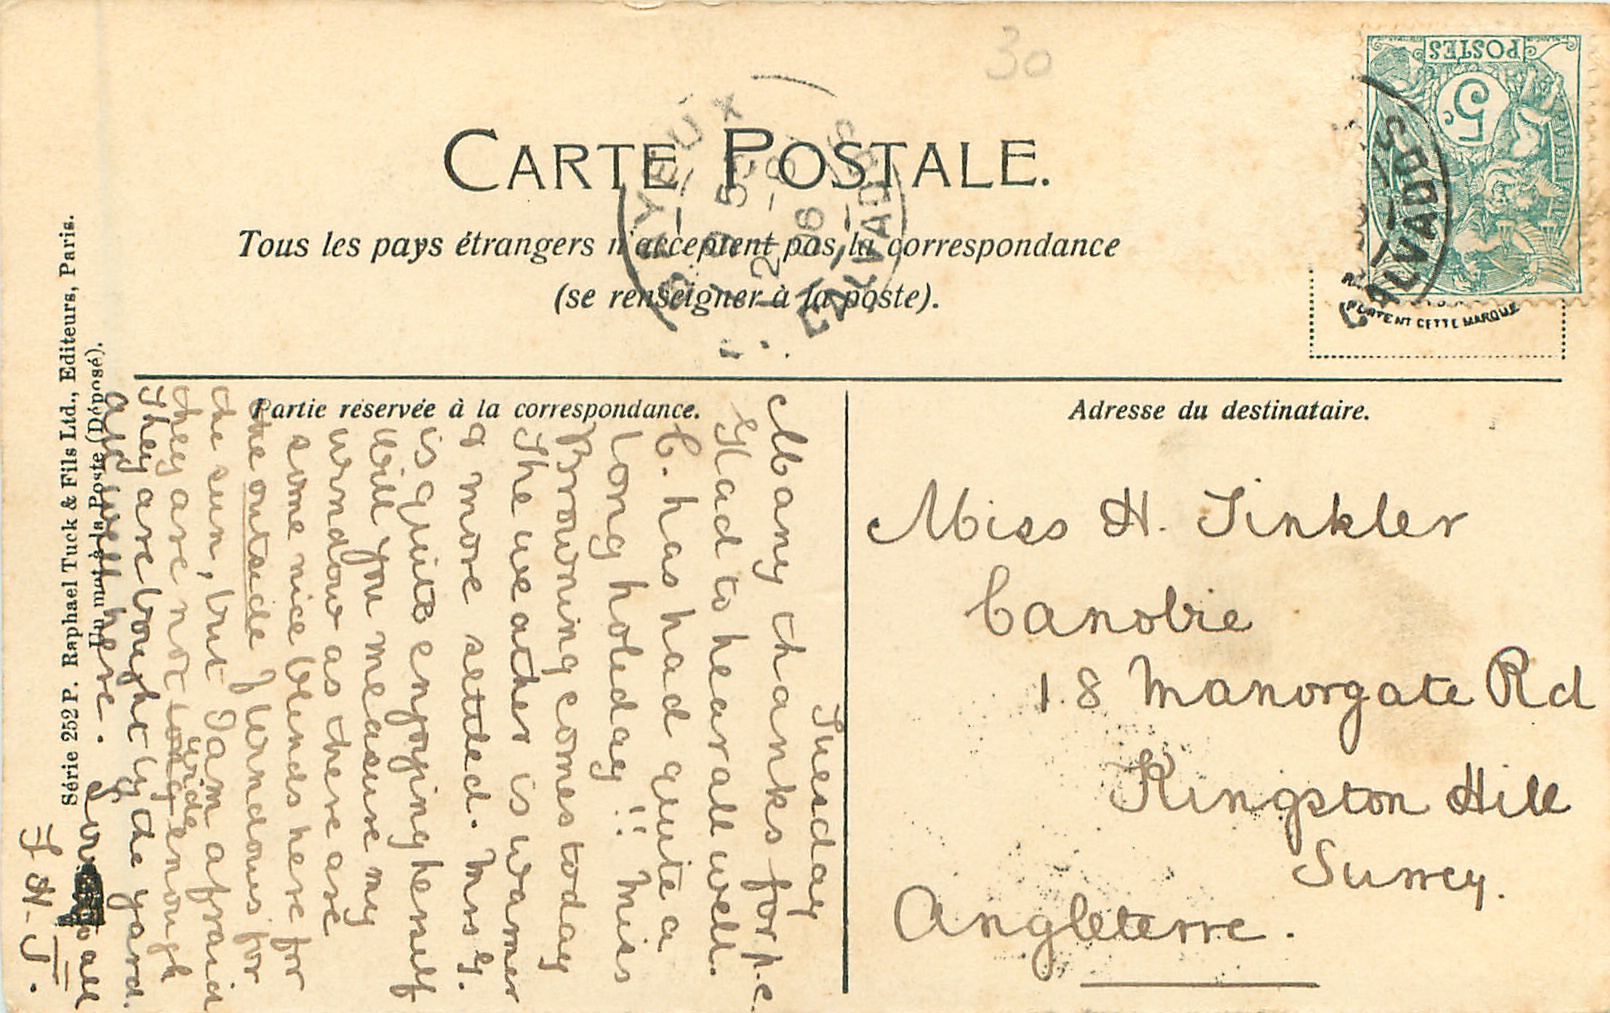 30
POSTES
5c
CALVADOS
CARTE POSTALE.
BAYEUX
9 55
2 - 8
06
CALVADOS
Tous les pays étrangers n'acceptent pas la correspondance
(se renseigner à la poste).
PORTENT CETTE MARQUE
Partie réservée à la correspondance.
Adresse du destinataire.
Série 252 P. Raphael Tuck & Fils Ltd., Editeurs, Paris.
Un mot à la Poste (Déposé).
Tuesday
Many thanks for p.c.
Glad to hear all well.
C. has had quite a
long holiday!! Miss
Browning comes today
The weather is warmer
& more settled. Mrs G.
is quite enjoying herself
Will you measure my
window as there are
some nice blinds here for
the outside of windows for
the sun, but I am afraid
they are not long enough
wide
They are bought by the yard.
are well here.
all
F. H. T.
Miss H. Tinkler
Canobie
18 Manorgate Rd
Kingston Hill
Surrey.
Angleterre.